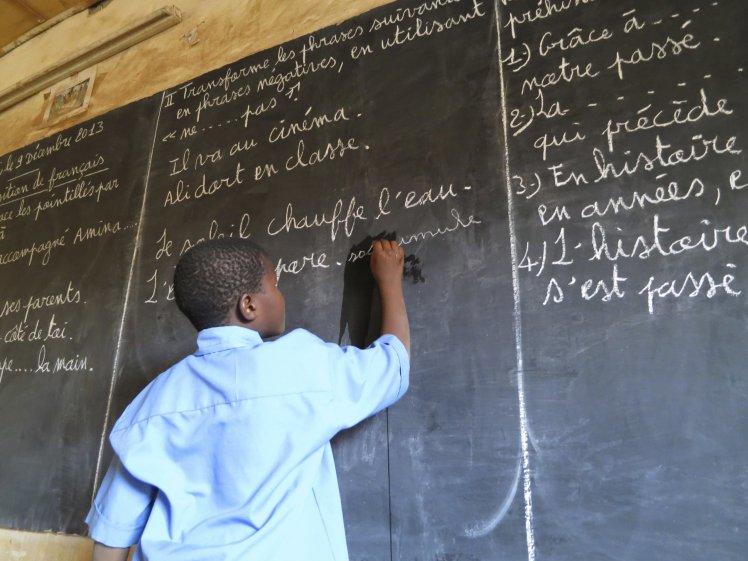 le 9 Décembre 2013
de français
les pointillés par
à
accompagné Amina....
ses parents.
côté de toi.
....la main.
II Transforme les phrases
en phrases négatives, en utilisant
« ne......pas »
Il va au cinéma.
Ali dort en classe.
Le soleil chauffe l'eau.
1) Grâce à .......
nœtre passé.
2) La .......
qui précède
3) En histoire
en années, e
4) L'histoire
s'est passé